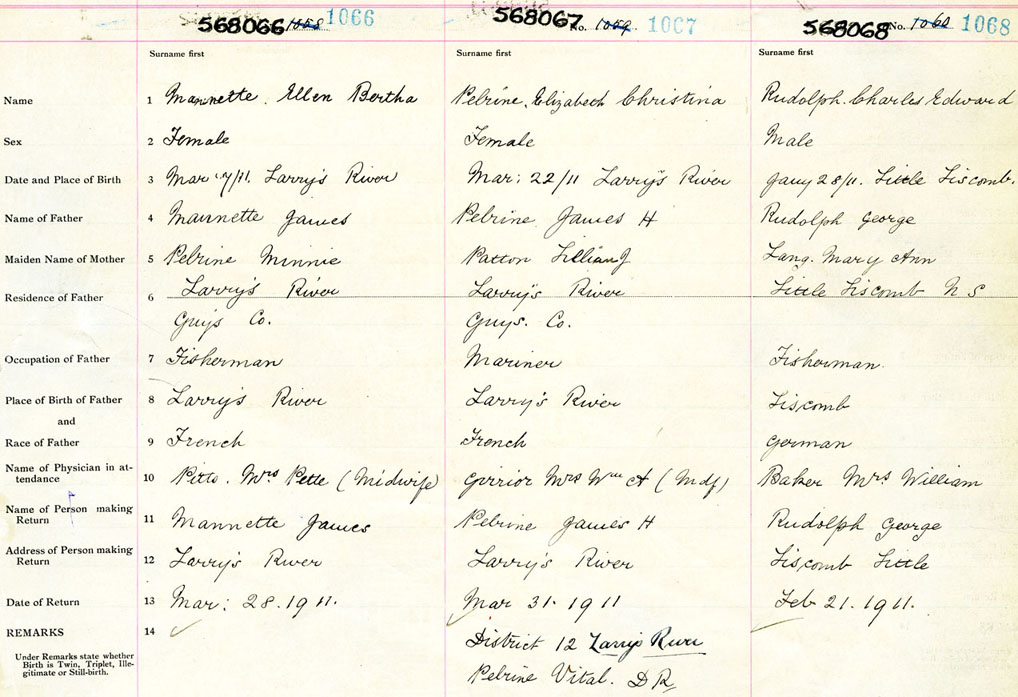 568066 1058 1066 568067 No. 1059 1067 568068 No. 1060 1068
Surname first Surname first Surname first
Name 1 Mannette. Ellen Bertha Pelrine, Elizabeth Christina Rudolph. Charles Edward
Sex 2 Female Female Male
Date and Place of Birth 3 Mar 7/11. Larry's River Mar: 22/11 Larry's River Jany 28/11. Little Liscomb.
Name of Father 4 Mannette James Pelrine James H Rudolph George
Maiden Name of Mother 5 Pelrine Minnie Patton Lillian J Lang. Mary Ann
Residence of Father 6 Larry's River Larry's River Little Liscomb N S
Guys Co. Guys. Co.
Occupation of Father 7 Fisherman Mariner Fisherman
Place of Birth of Father 8 Larry's River Larry's River Liscomb
and
Race of Father 9 French French German
Name of Physician in at-
tendance 10 Mrs Pette (Midwife) Mrs Wm A (Mdf) Baker Mrs William
Name of Person making
Return 11 Mannette James Pelrine James H Rudolph George
Address of Person making
Return 12 Larry's River Larry's River Liscomb Little
Date of Return 13 Mar: 28. 1911. Mar 31. 1911 Feb 21. 1911.
REMARKS 14
Under Remarks state whether
Birth is Twin, Triplet, Ille-
gitimate or Still-birth.
District 12 Larrys River
Pelrine Vital. D R,